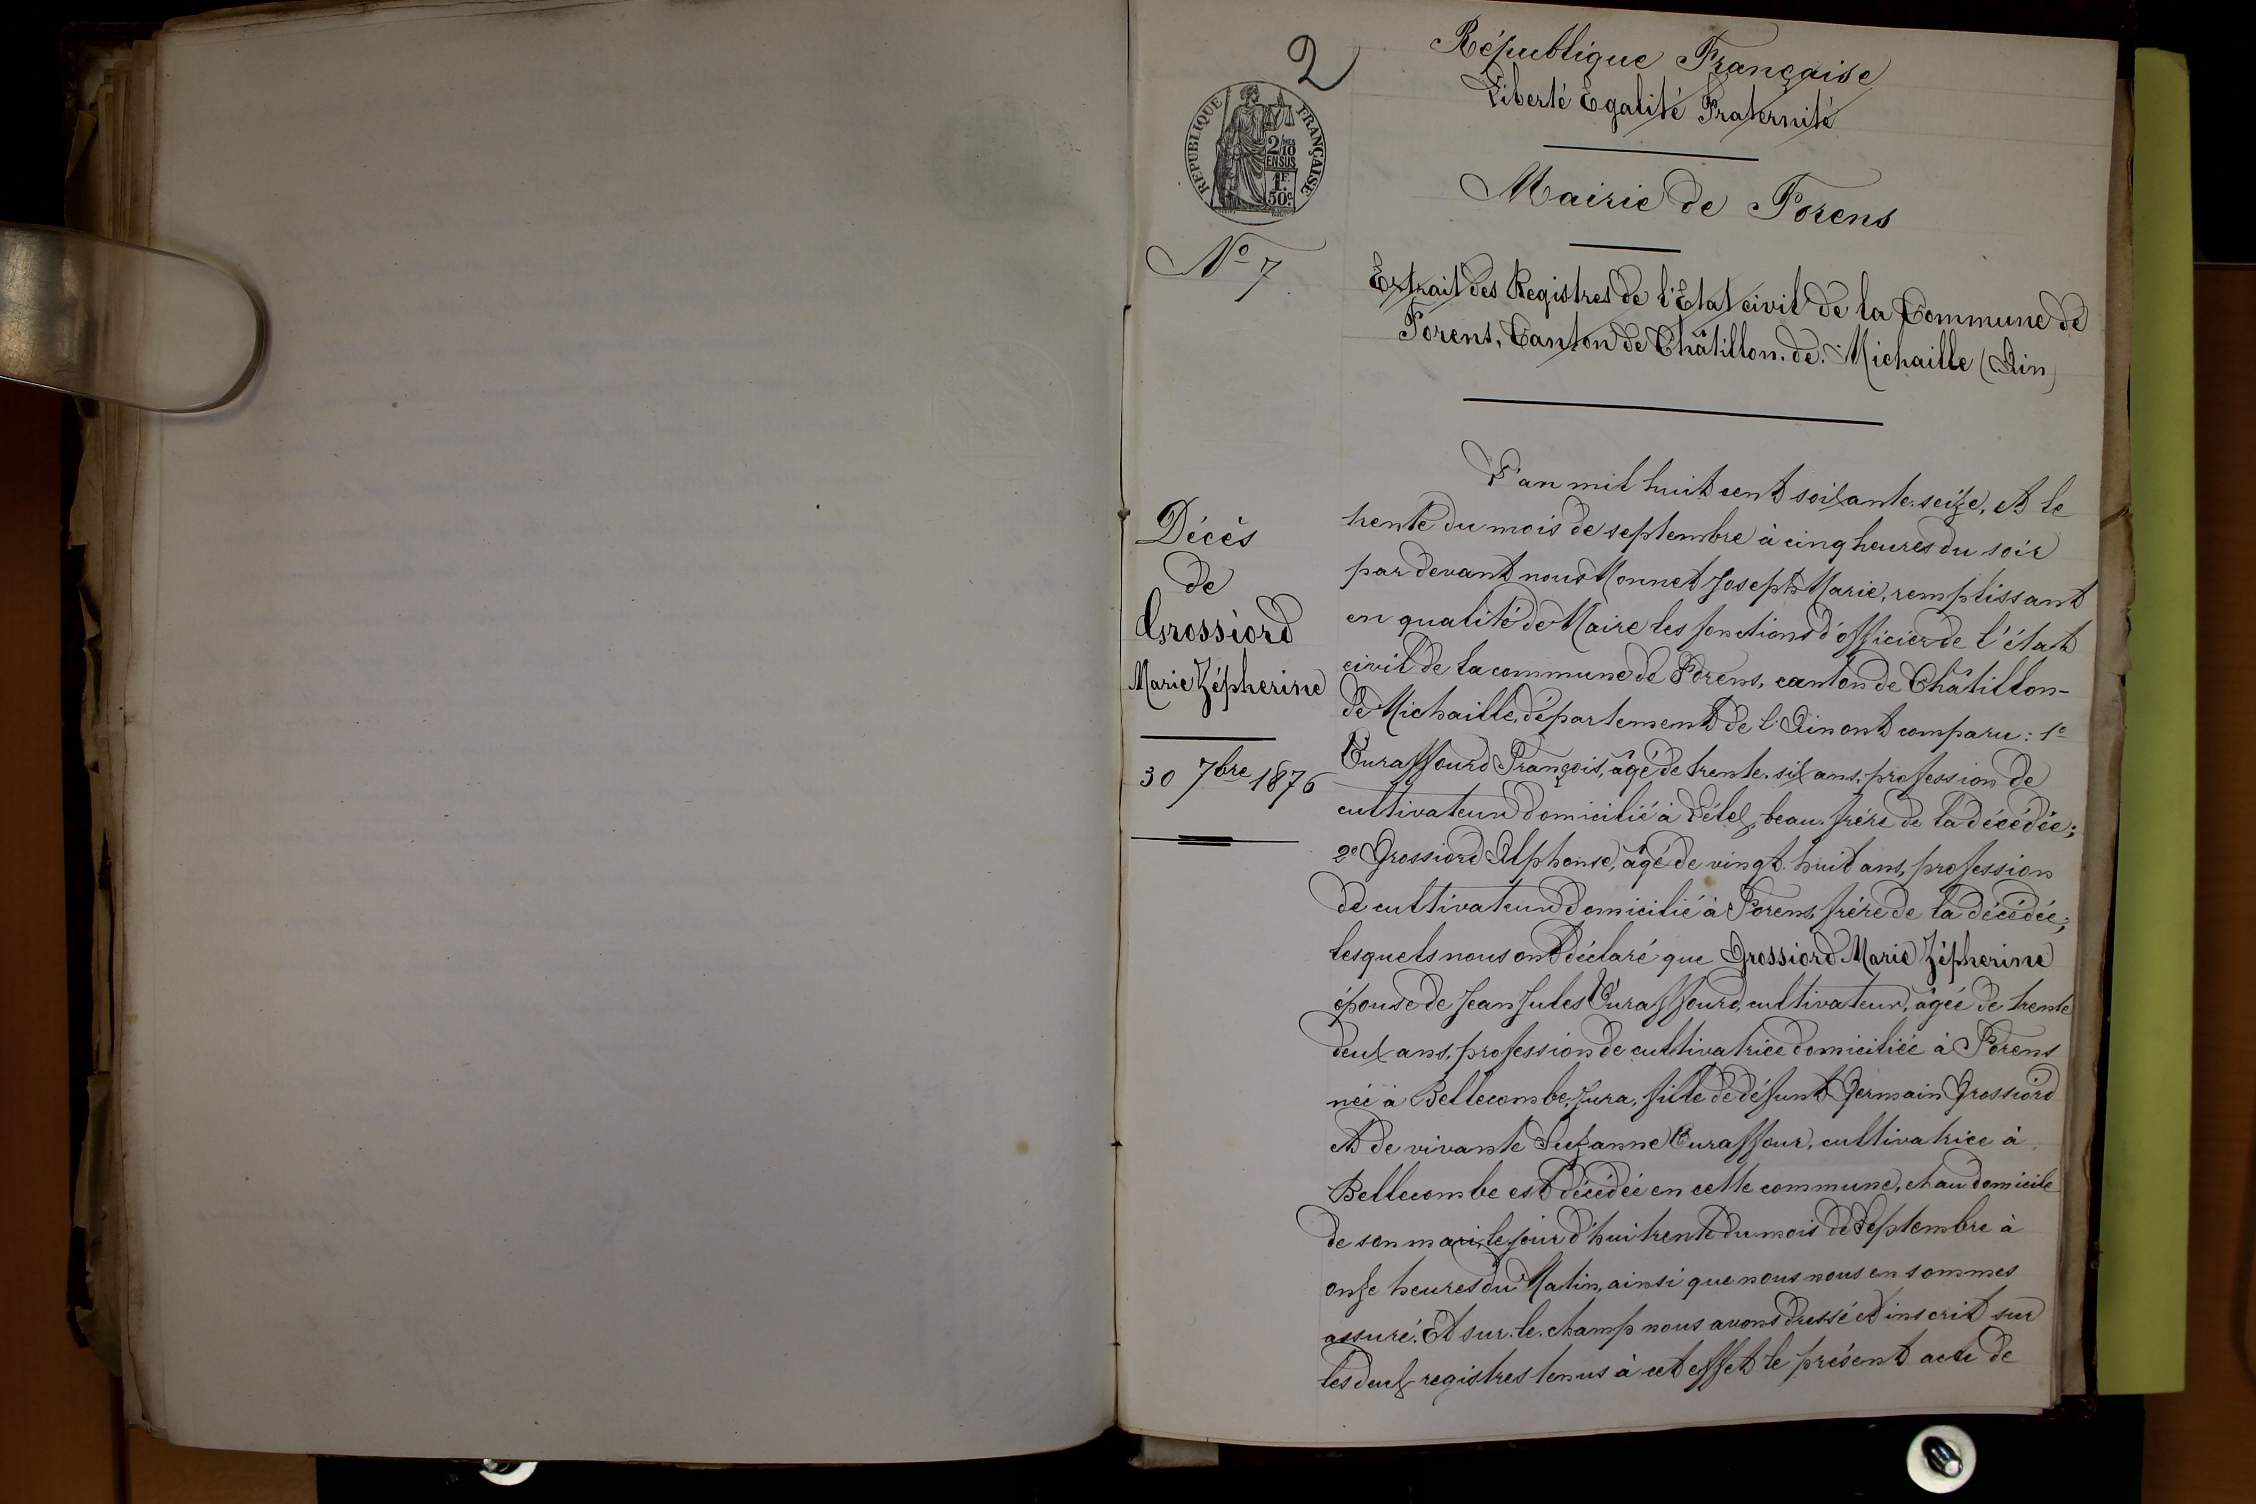 2
République Française
Liberté Egalité Fraternité
REPUBLIQUE FRANÇAISE
2/10
EN SUS
1F.
50c.
Mairie de Forens
No 7
Extrait des Registres de l'Etat civil de la Commune de
Forens, Canton de Châtillon. de. Michaille (Ain)
Décès
de
Grossiord
Marie Zépherine
30 7bre 1876
L'an mil huit cent soixante. seize, et le
trente du mois de septembre à cinq heures du soir
par devant nous Monnet Joseph Marie, remplissant
en qualité de Maire les fonctions d'officier de l'état
civil de la commune de Forens, canton de Châtillon-
de Michaille, département de l'Ain ont comparu : 1o
Buraffourd François, âgé de trente. six ans, profession de
cultivateur domicilié à Lélex, beau. frère de la décédée ;
2o Grossiord Alphonse, âgé de vingt. huit ans, profession
de cultivateur domicilié à Forens, frère de la décédée ;
lesquels nous ont déclaré que Grossiord Marie Zépherine
épouse de Jean Jules Buraffourd, cultivateur, âgée de trente
deux ans, profession de cultivatrice domiciliée à Forens
née à Bellecombe, Jura, fille de défunt Germain Grossiord
et de vivante Suzanne Buraffour, cultivatrice à
Bellecombe est décédée en cette commune, et au domicile
de son mari, le jour d'hui trente du mois de Septembre à
onze heures du Matin, ainsi que nous nous en sommes
assuré. Et sur. le. champ nous avons dressé et inscrit sur
les deux registres tenus à cet effet le présent acte de